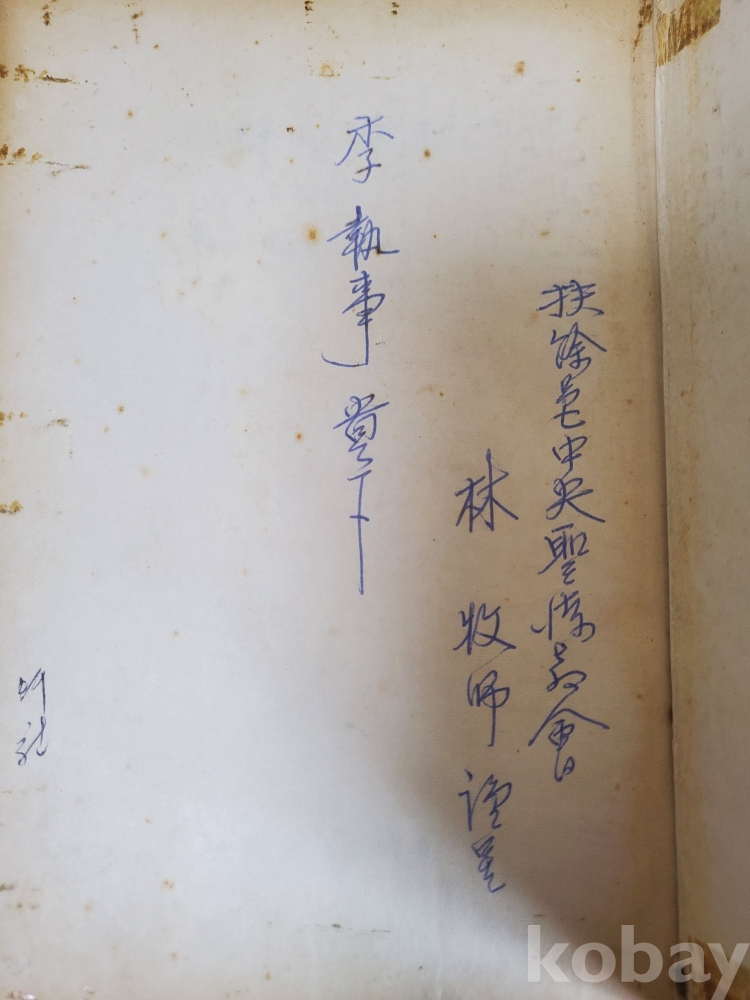 扶餘邑中央聖潔教會
林 牧師 謹呈
李 執事 貴下
kobay